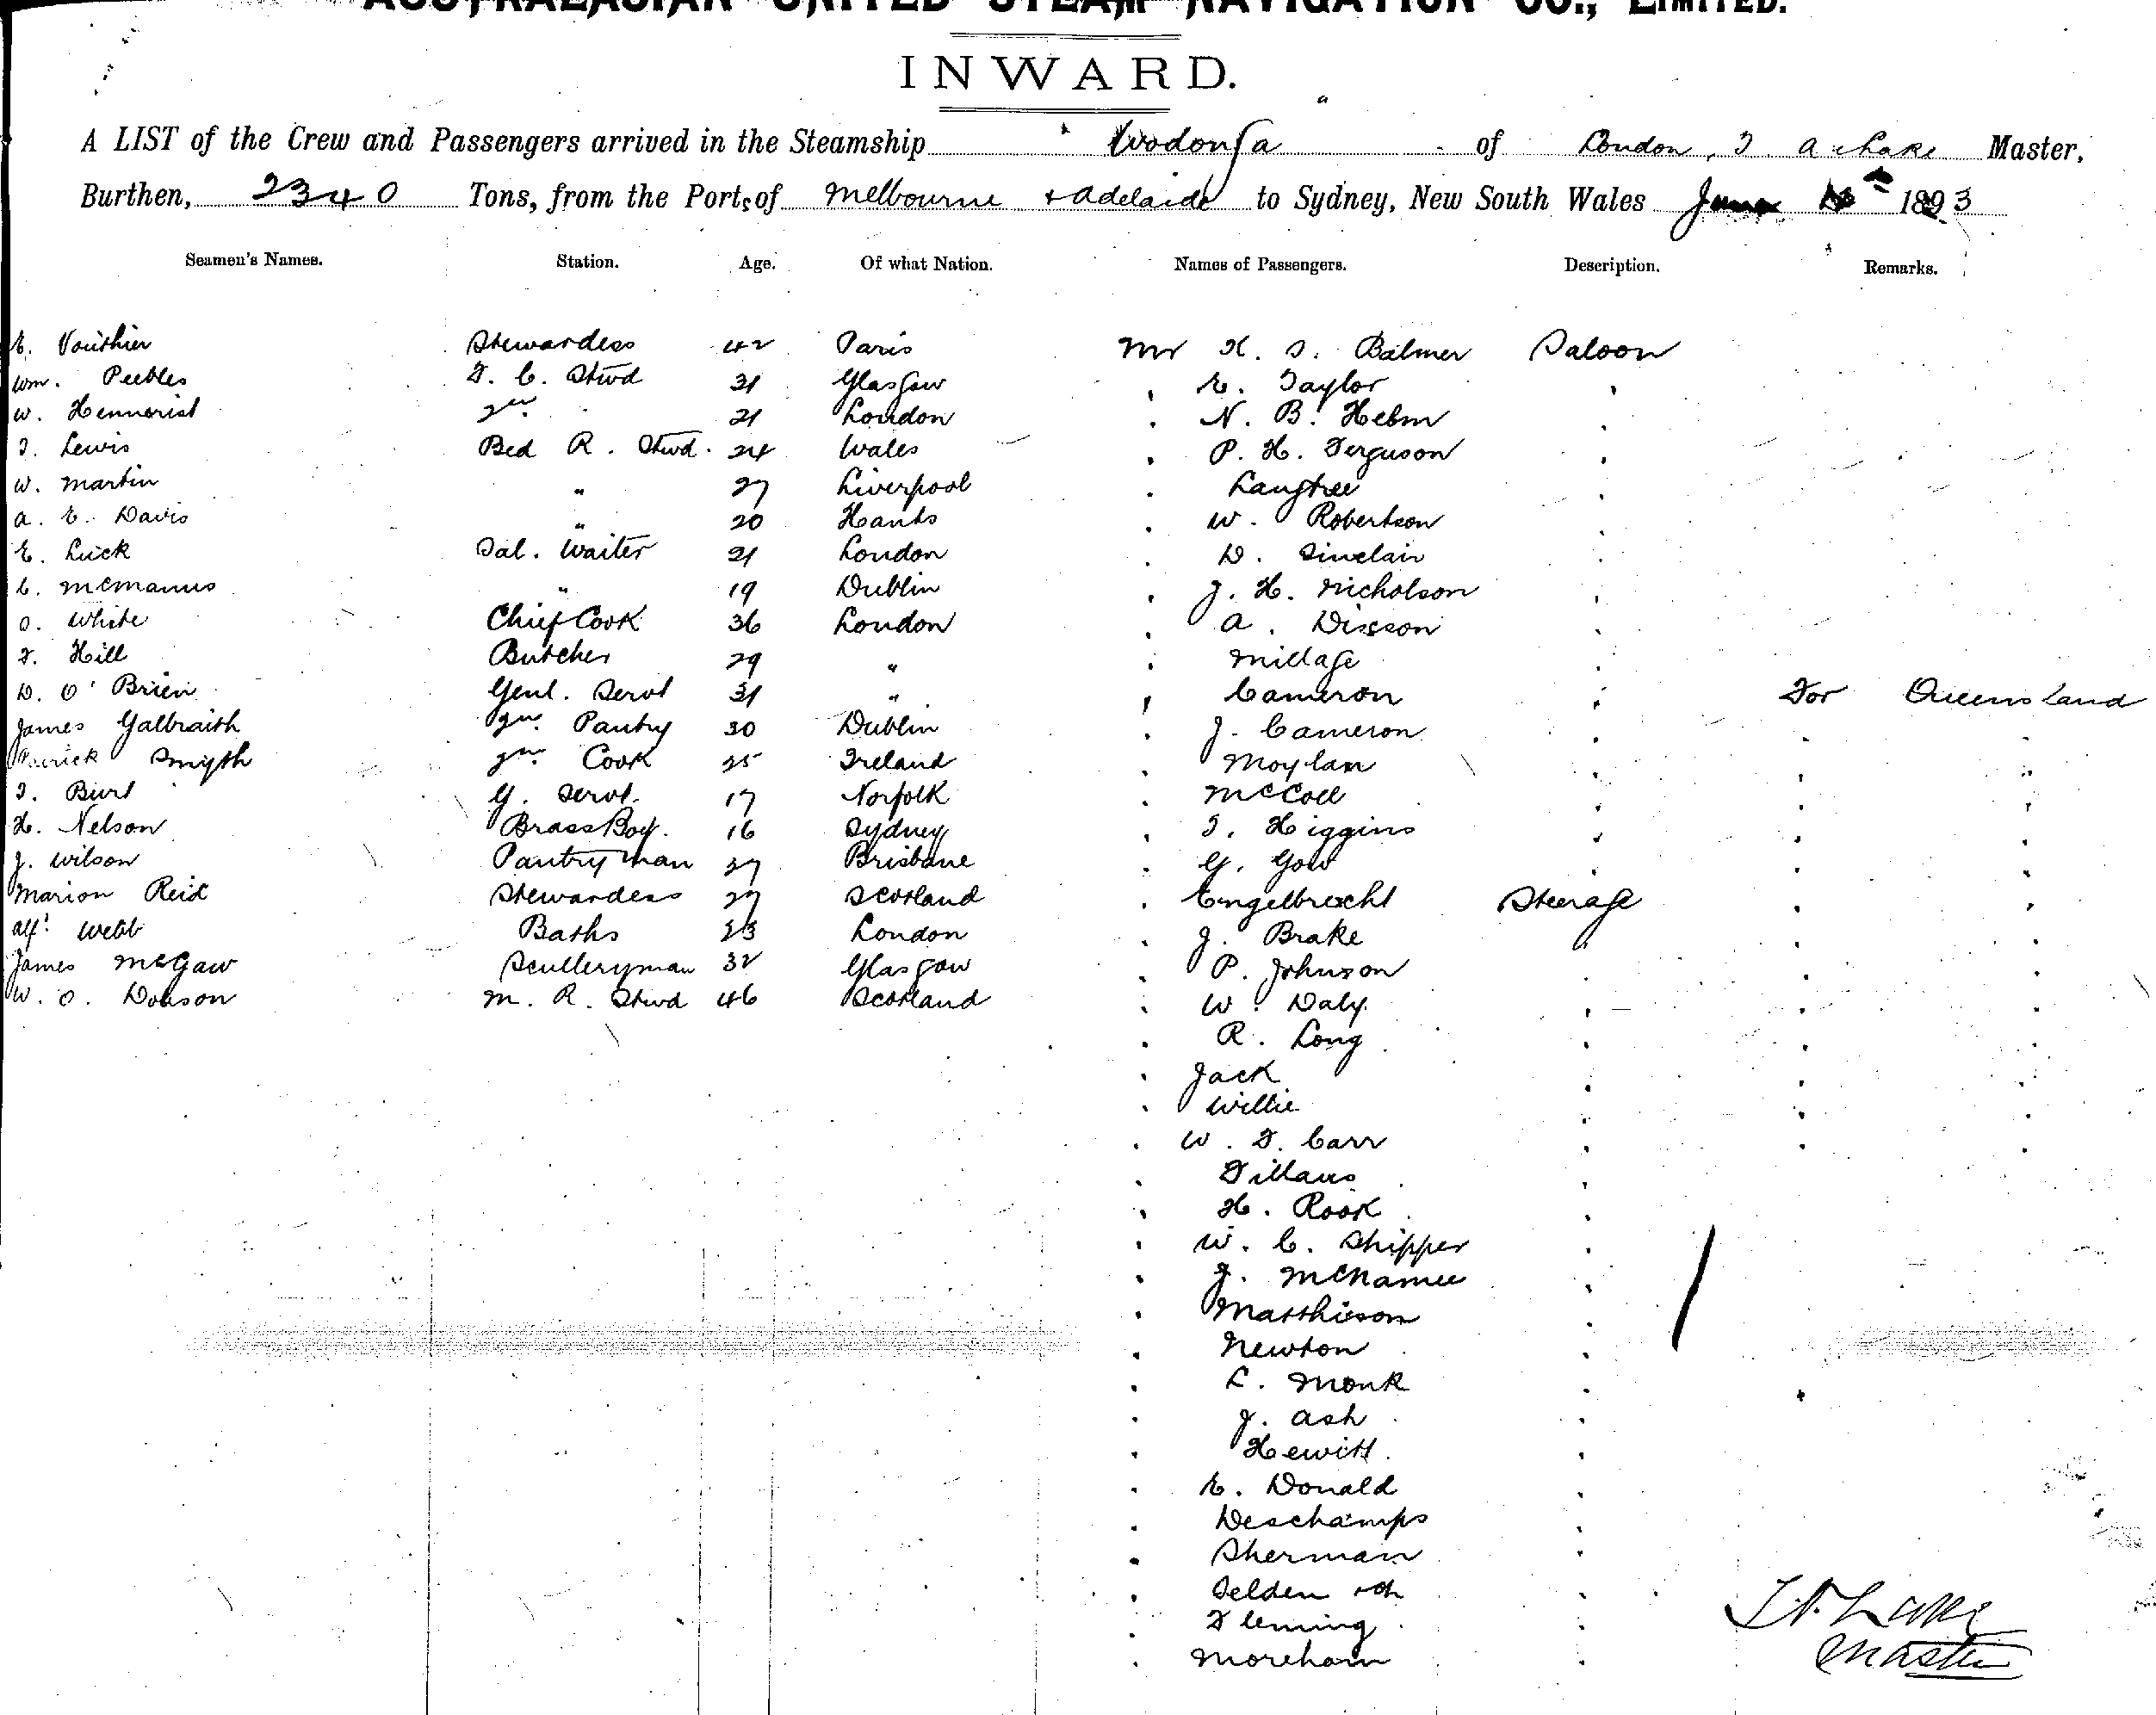 AUSTRALASIAN UNITED STEAM NAVIGATION CO., LIMITED.
INWARD.
A LIST of the Crew and Passengers arrived in the Steamship Wodonga of London, T. A. Lake Master,
Burthen, 2340 Tons, from the Ports of Melbourne + Adelaide to Sydney, New South Wales June 1893
Seamen's Names. Station. Age. Of what Nation. Names of Passengers. Description. Remarks.
E. Vouthier Stewardess 42 Paris Mr H. S. Balmer Saloon
Wm. Peebles F. C. Stwd 31 Glasgow E. Taylor
W. Hennerist 2nd " 21 London N. B. Helm
T. Lewis Bed R. Stwd. 24 Wales P. H. Ferguson
W. Martin " 27 Liverpool Langtree
A. E. Davis " 20 Hants W. Robertson
E. Luck Sal. Waiter 21 London D. Sinclair
C. McManus " 19 Dublin J. H. Nicholson
O. White Chief Cook 36 London A. Disson
F. Hill Butcher 29 " Millage
D. O'Brien Genl. Servt 31 " Cameron For Queensland
James Galbraith 2nd Pantry 30 Dublin J. Cameron
Patrick Smyth 2nd Cook 25 Ireland Moylan
T. Burt G. Servt. 17 Norfolk McColl
H. Nelson Brass Boy. 16 Sydney T. Higgins
J. Wilson Pantryman 27 Brisbane G. Gow
Marion Reid Stewardess 27 Scotland Engelbrecht Steerage
Alf. Webb Baths 23 London J. Brake
James McGaw Sculleryman 32 Glasgow P. Johnson
W. O. Dobson M. R. Stwd 46 Scotland W. Daly
R. Long
Jack
Willie
W. F. Carr
Tillans
H. Rook
W. C. Shipper
J. McNamee
Matthieson
Newton
L. Monk
J. Ash
Hewitt
E. Donald
Deschamps
Sherman
Selden
Fleming
Moreham
T. A. Lake
Master